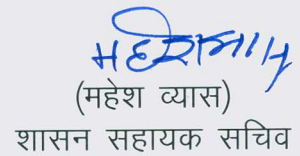 (महेश व्यास)
शासन सहायक सचिव